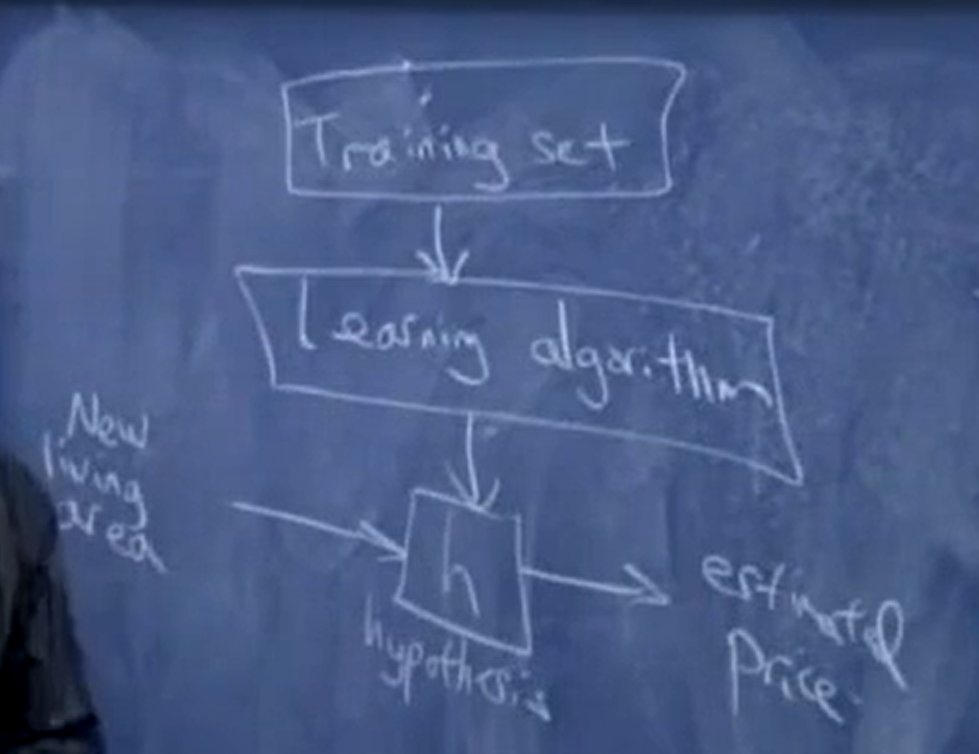 Training set
Learning algorithm
New
living
area
h
hypothesis
estimated
price.